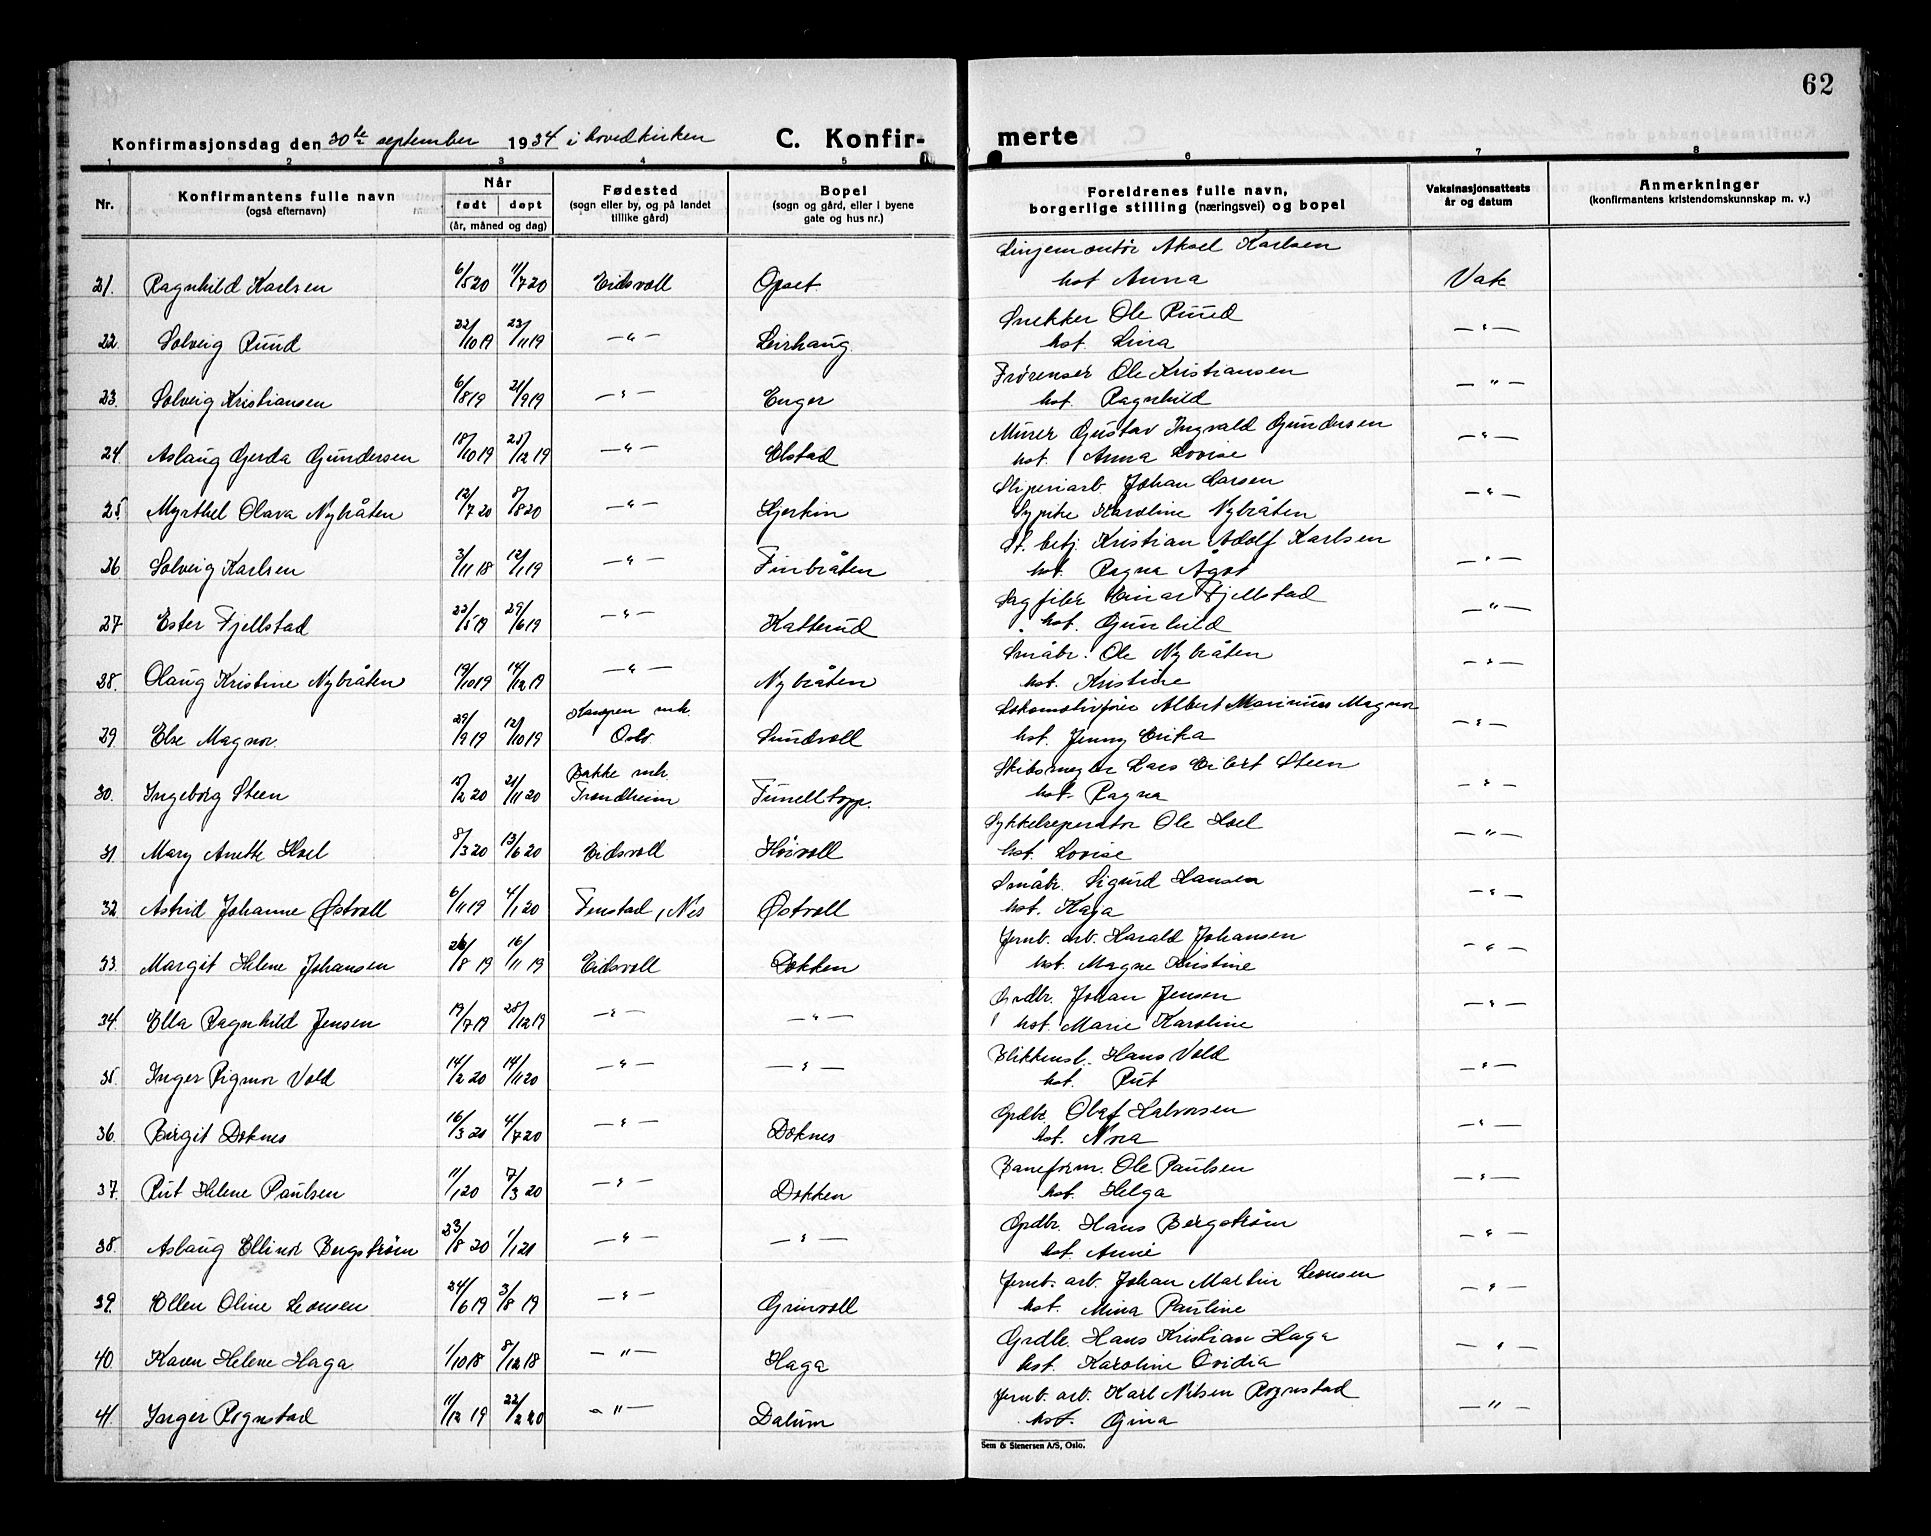 62
Konfirmasjonsdag den 30te september 1934 i hovedkirken C. Konfir- merte
1 2 3 4 5 6 7 8
Nr. Konfirmantens fulle navn (også efternavn) Når født døpt (år, måned og dag) Fødested (sogn eller by, og på landet tillike gård) Bopel (sogn og gård, eller i byene gate og hus nr.) Foreldrenes fulle navn, borgerlige stilling (næringsvei) og bopel Vaksinasjonsattests år og datum Anmerkninger (konfirmantens kristendomskunnskap m. v.)
Linjemontør Aksel Karlsen
21. Ragnhild Karlsen 6/5 20 11/7 20 Eidsvoll Opset hst Anna Vak
Snekker Ole Ruud
22. Solveig Ruud 22/10 19 23/11 19 — " — Leirhaug hst. Lina — " —
Ole Kristiansen
23. Solveig Kristiansen 6/8 19 21/9 19 — " — Enger hst. Ragnhild — " —
Murer Gustav Ingvald Gundersen
24. Aslaug Gerda Gundersen 18/10 19 25/12 19 — " — Olstad hst. Anna Lovise — " —
Sliperiarb. Johan Larsen
25. Myrthel Olava Nybråten 12/7 20 8/8 20 — " — Syerske Karoline Nybråten — " —
St. betj. Kristian Adolf Karlsen
26 Solveig Karlsen 3/11 18 12/1 19 — " — Finbråten hst. Ragna Ågot — " —
Einar Fjellstad
27. Ester Fjellstad 22/5 19 29/6 19 — " — Katterud hst. Gunhild — " —
Småbr. Ole Nybråten
28. Olaug Kristine Nybråten 19/10 19 14/12 19 — " — Nybråten hst. Kristine — " —
Lokomotivfører Albert Marinius Magnor
29. Else Magnor. 29/9 19 12/10 19 Oslo Sundvoll hst. Jenny Erika — " —
Skibsmegler Lars Eilert Steen
30. Ingeborg Steen 15/2 20 21/11 20 Bakke mh. Trondheim Tunelltopp. hst. Ragna — " —
Sykkelreperatør Ole Hoel
31. Mary Anette Hoel 8/3 20 13/6 20 Eidsvoll Höivoll hst. Lovise — " —
Småbr. Sigurd Hansen
32. Astrid Johanne Østvoll 6/11 19 4/1 20 Fenstad, Nes Østvoll hst. Kaja — " —
Jernb. arb. Harald Johansen
33. Margit Helene Johansen 26/8 19 16/11 19 Eidsvoll Dokken hst. Magna Kristine — " —
Grdbr. Johan Jensen
34. Ella Ragnhild Jensen 19/7 19 28/12 19 — " — — " — hst. Marie Karoline — " —
Blikkensl. Hans Vold
35. Inger Rigmor Vold 14/2 20 14/11 20 — " — — " — hst. Rut — " —
Grdbr. Olaf Halvorsen
36. Birgit Doknes 16/3 20 4/7 20 — " — Doknes hst. Nora — " —
Baneform. Ole Paulsen
37. Rut Helene Paulsen 11/1 20 7/3 20 — " — Dokken hst. Helga — " —
Grdbr. Hans Bergstrøm
38. Aslaug Ellinor Bergstrøm 23/8 20 1/1 21 — " — — " — hst. Anne — " —
Jernb. arb. Johan Martin Leonsen
39. Ellen Oline Leonsen 24/6 19 3/8 19 — " — Grinvoll hst. Mina Pauline — " —
Grdbr. Hans Kristian Haga
40 Karen Helene Haga 1/10 18 8/12 18 — " — Haga hst. Karoline Ovidia — " —
Jernb. arb. Karl Nilsen Rognstad
41. Inger Rognstad 11/12 19 22/2 20 — " — Dalum hst. Gina — " —
Sem & Stenersen A/S, Oslo.